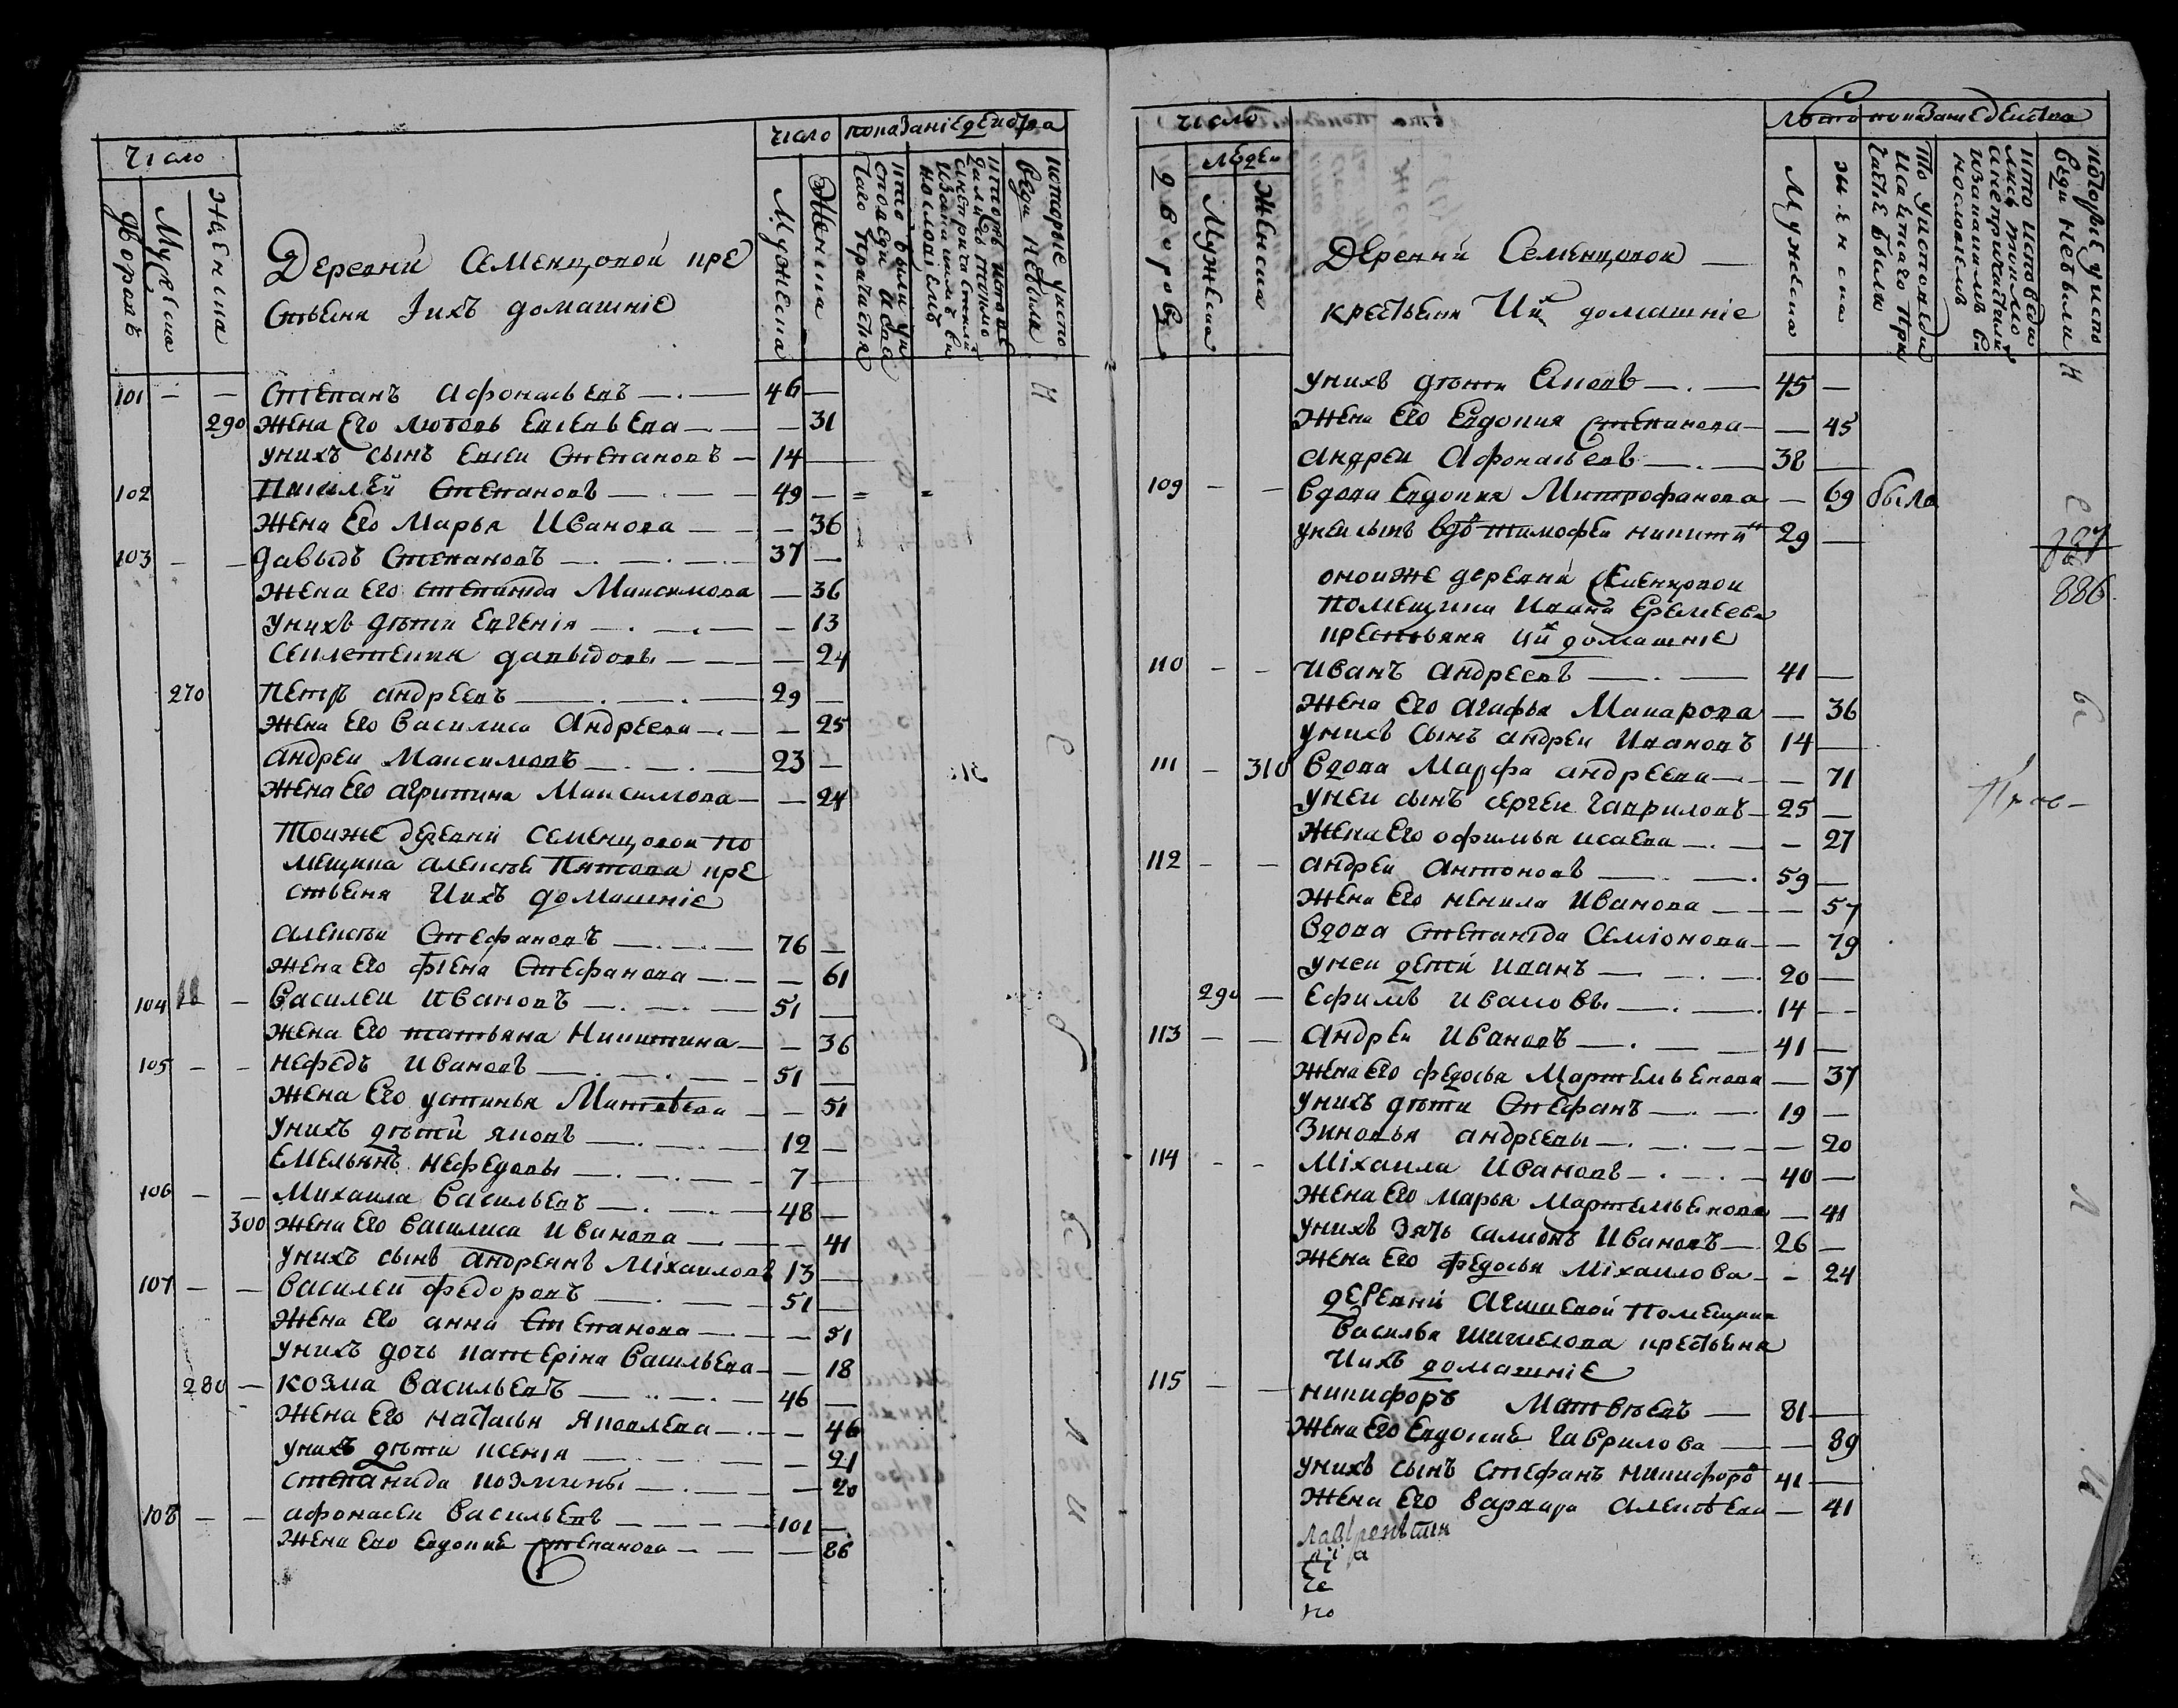 число
дворовъ
Мужеска
Женска
число
Мужеска
Женска
показаніе действа
кто были у исповеди и святаго причастія
которые у исповеди небыли
Деревни Семенцовой кре
стьяни Іихъ домашніе
101 — — Степанъ Афонасьевъ — 46 —
290 жена Его любовь Евсевьева — — 31
унихъ сынъ Евсеи Степановъ — 14 —
102 Василей Степановъ — 49 —
жена Его Марья Иванова — — 36
103 — — давыдъ Степановъ — 37 —
жена Его степанида Максимова — 36
унихъ дѣти Евгенія — — 13
Секлетенья давыдовы — — 24
270 петръ андреевъ — 29 —
жена Его Василиса Андреева — — 25
андреи Максимовъ — 23 —
жена Его агрипина Максимова — — 24
тоиже деревни Семенцовои по
мещика алексѣя Пятова кре
стьяня Иихъ домашніе
алексѣи Стефановъ — 76 —
жена Его фіена Стефанова — — 61
104 — Василеи Ивановъ — 51 —
жена Его татьяна Никитина — — 36
105 — — нефедъ Ивановъ — 51 —
жена Его устинья Матвѣева — — 51
унихъ дѣтй яковъ — 12 —
Емельянъ нефедовы — 7 —
106 — — Михаила Васильевъ — 48 —
300 жена Его Василиса Иванова — — 41
унихъ сынъ андреянъ Міхаиловъ 13 —
107 — — Василеи федоровъ — 51 —
жена Его анна Степанова — — 51
унихъ дочь катеріна Васильева — — 18
280 — козма Васильевъ — 46 —
жена Его настасья Яковлева — — 46
унихъ дѣти ксенія — — 21
степанида козмины — — 20
108 — — афонасеи Васильевъ — 101 —
жена Ево Евдокие степанова — — 86
число
людеи
дворовъ
Мужеска
Женска
Лѣта
Мужеска
женска
показание действа
которые у исповеди небыли
Деревни Семенцовои —
крестьяня Ий домашніе
унихъ дѣти Яковъ — 45 —
жена Его Евдокия степанова — — 45
андреи Афонасьевъ — 38 —
109 — — вдова Евдокия Митрофанова — 69 была
унеи сынъ вдо тимофеи никити 29 —
887
886
оноиже деревни Семенцовои
помещика Ивана Еремеева
крестьяня ий домашніе
110 — — иванъ андреевъ — 41 —
жена Его агафья Макарова — 36
унихъ сынъ андреи Ивановъ 14 —
111 — 310 вдова Марфа андреева — — 71
унеи сынъ сергеи гавриловъ — 25 —
жена Его офимья исаева — — 27
112 — — андреи антоновъ — 59 —
жена Его ненила Иванова — — 57
вдова степанида Семіонова — — 79
унеи детй иванъ — 20 —
290 — Ефимъ ивановы — 14 —
113 — — андреи Ивановъ — 41 —
жена Его федосья Мартемьенова — 37
унихъ дѣти Стефанъ — 19 —
Зиновья андреевы — — 20
114 — — Міхаила Ивановъ — 40 —
жена Его марья Мартемьенова — 41
унихъ зять самионъ Ивановъ — 26 —
жена Его федосья Міхаилова — — 24
деревни агишевой помещика
Василья шишелова крестьяня
Иихъ домашніе
115 — — никифоръ Матвѣевъ — 81 —
жена Его Евдокие гаврилова — — 89
унихъ сынъ Стефанъ никифоро 41 —
жена Его варвара алексѣева — 41
Че
но